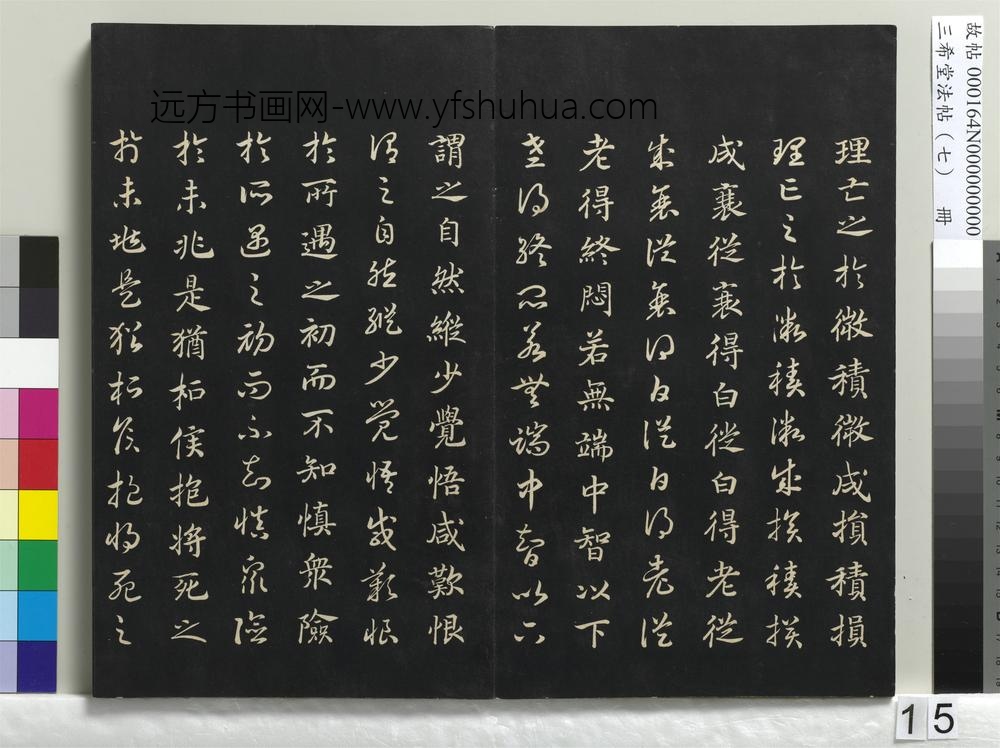 远方书画网-www.yfshuhua.com
故帖 000164N000000000
三希堂法帖(七) 冊
理亡之於微積微成損積損
理亡之於微積微成損積損
成衰從衰得白從白得老從
成衰從衰得白從白得老從
老得終悶若無端中智以下
老得終悶若無端中智以下
謂之自然縱少覺悟咸歎恨
謂之自然縱少覺悟咸歎恨
於所遇之初而不知慎衆險
於所遇之初而不知慎衆險
於未兆是猶桓侯抱將死之
於未兆是猶桓侯抱將死之
15